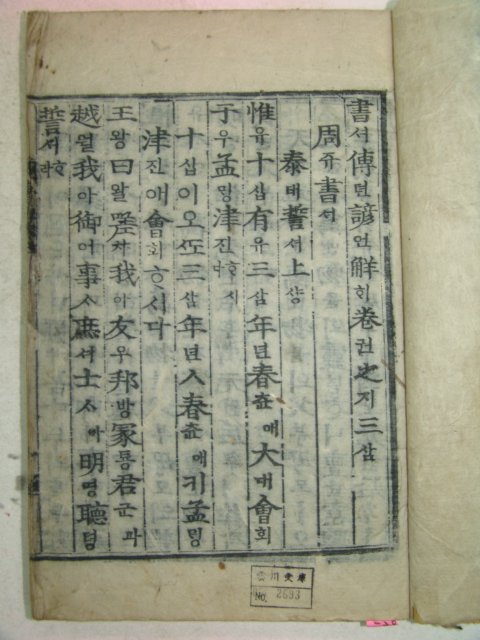 書셔傳뎐諺언觧ᄒᆡ卷권之지三삼
周쥬書셔
泰태誓셔上샹
惟유十십有유三삼年년春츈애大대會회
于우孟ᄆᆡᆼ津진ᄒᆞ시다
十십이오ᄯᅩ三삼年년ㅅ春츈애키孟ᄆᆡᆼ
津진애會회ᄒᆞ시다
王왕曰왈嗟차我아友우邦방冢툥君군과
越월我아御어事ᄉᆞ庶셔士ᄉᆞ아明명聽텽
誓셔ᄒᆞ라
No. 2693